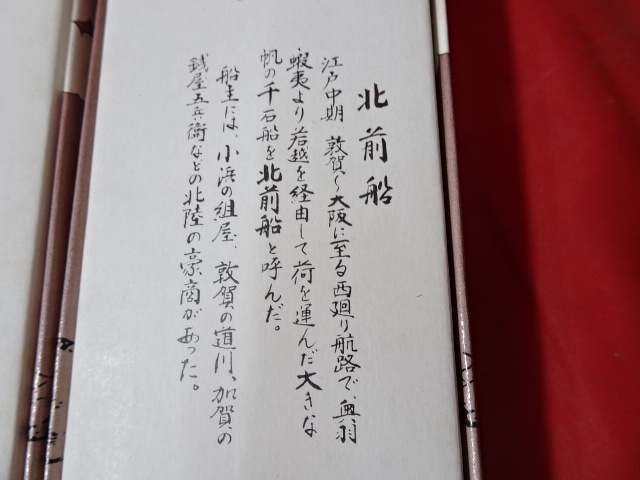 北前船
江戸中期 敦賀〜大阪に至る西廻り航路で、奥羽
蝦夷より若越を経由して荷を運んだ大きな
帆の千石船を北前船と呼んだ。
船主には、小浜の組屋、敦賀の道川、加賀の
銭屋五兵衛などの北陸の豪商があった。